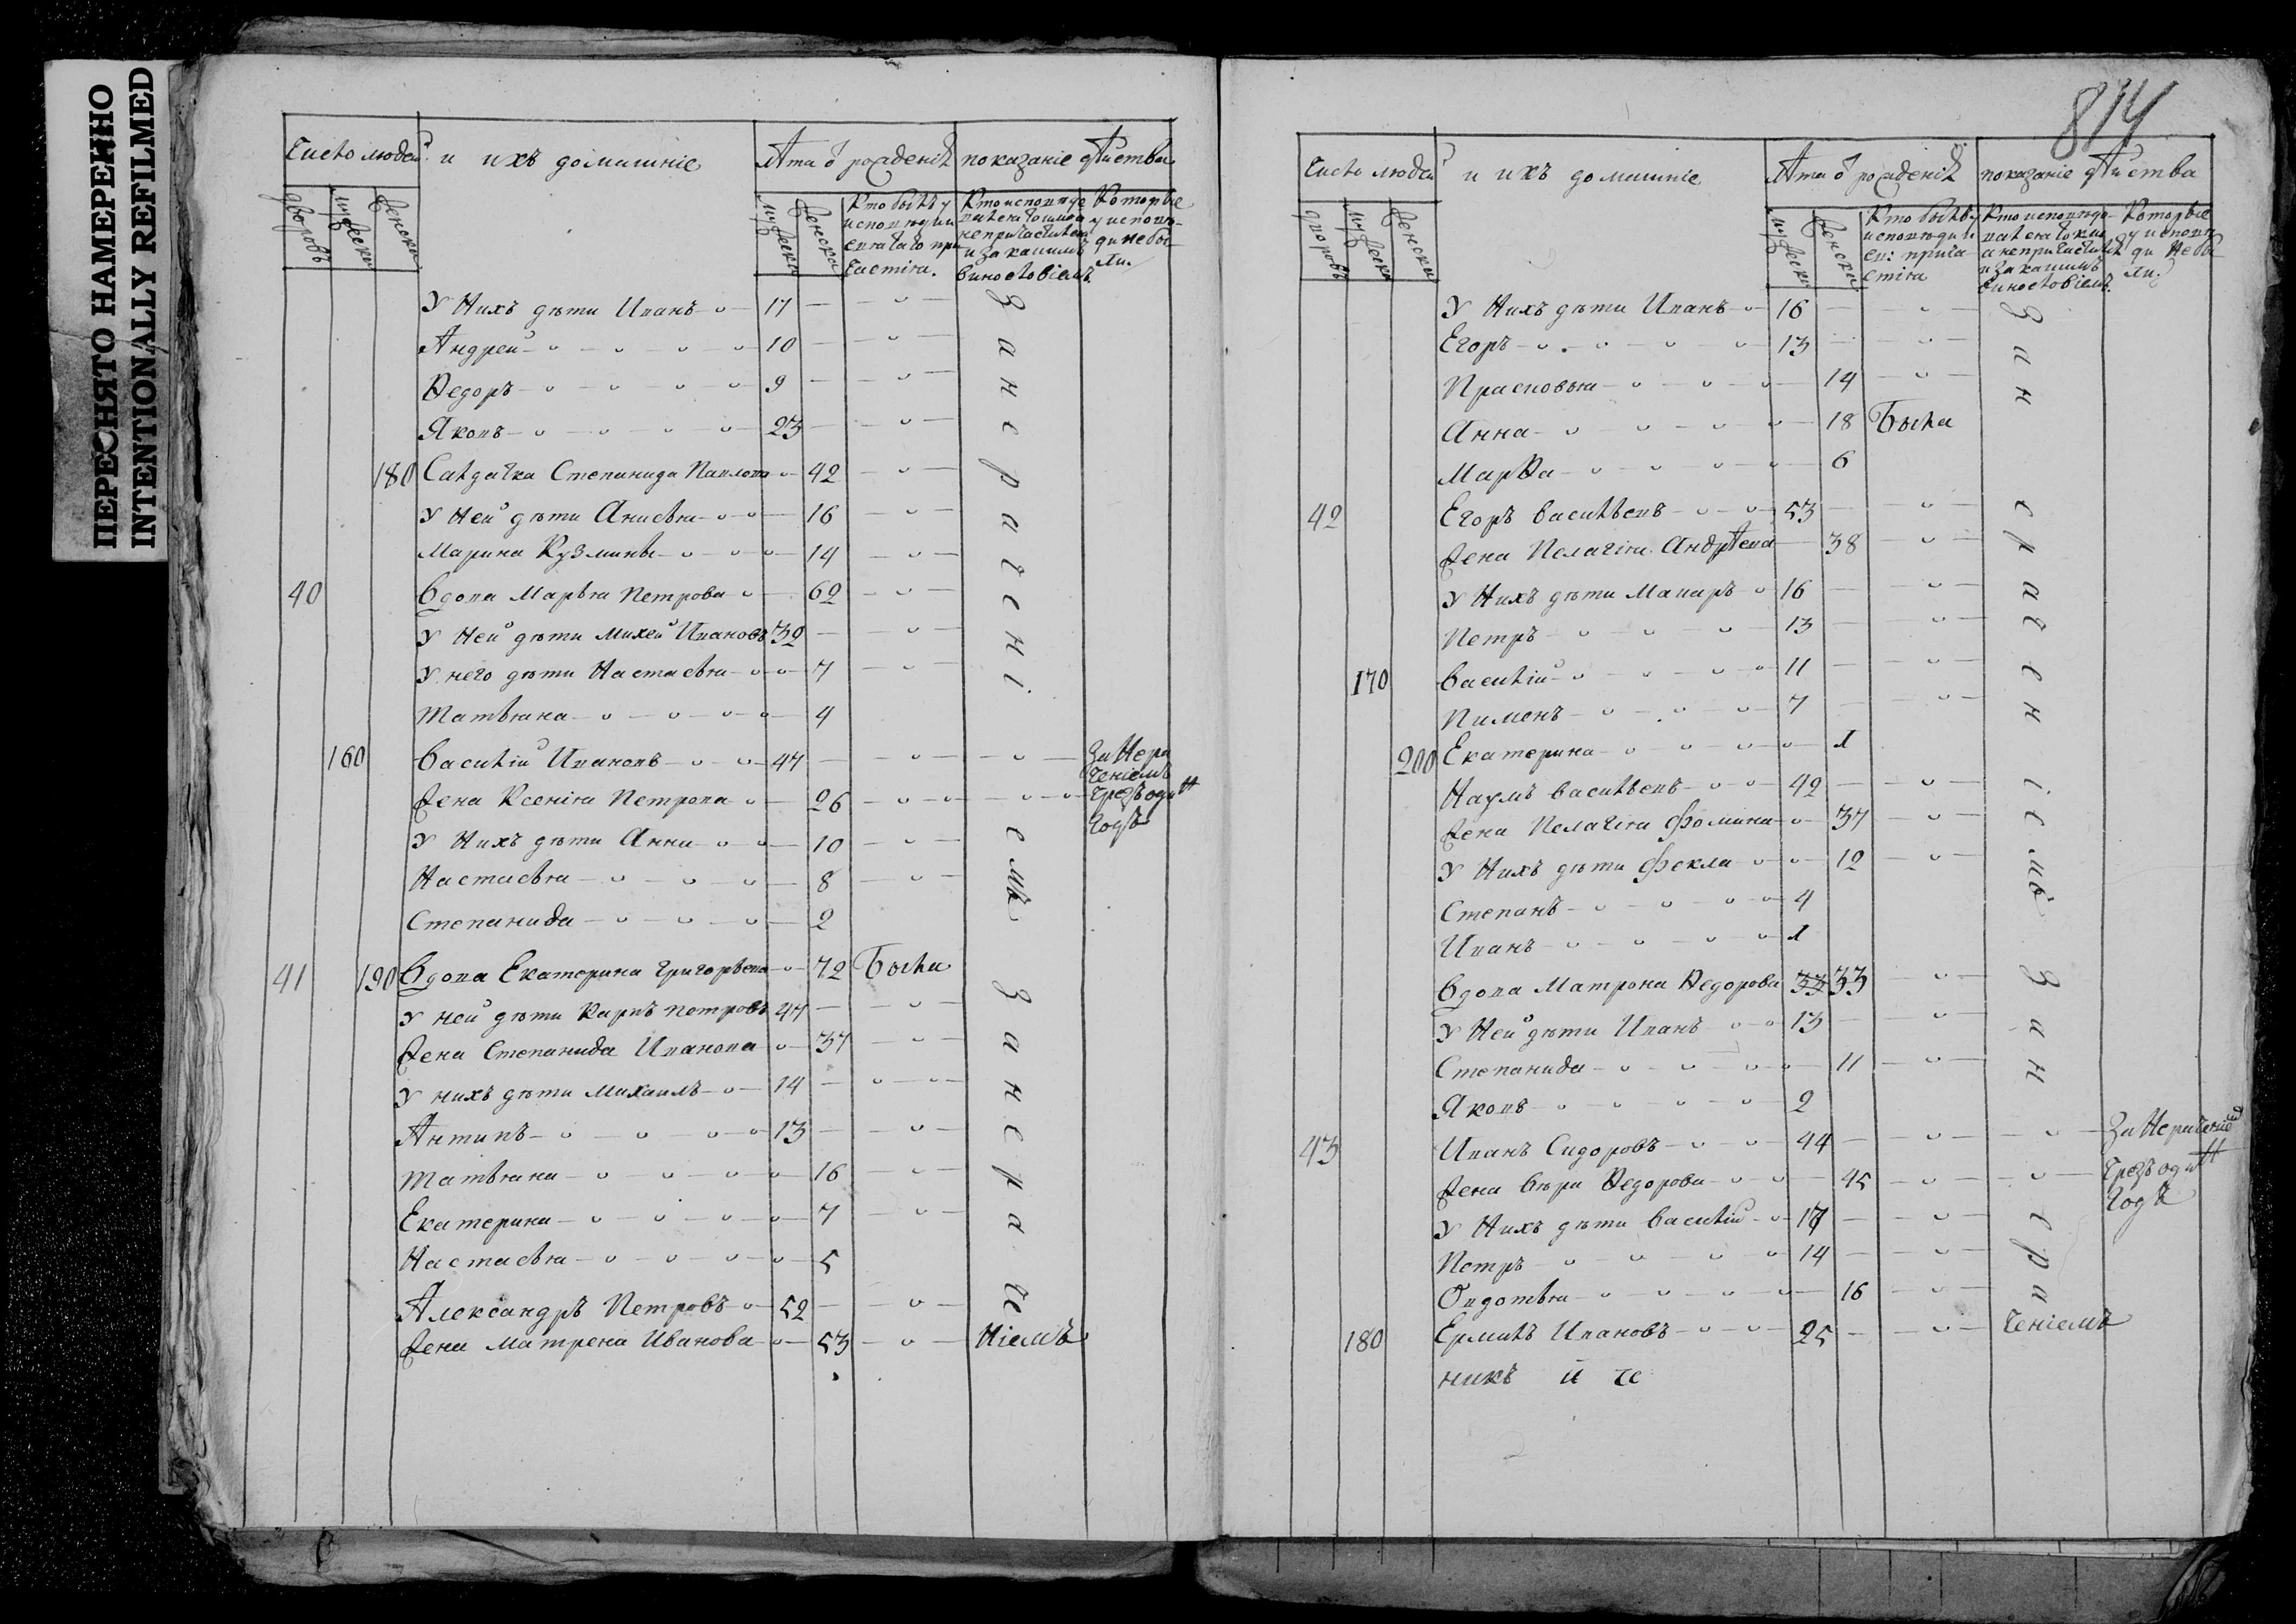 ПЕРЕСНЯТО НАМЕРЕННО
INTENTIONALLY REFILMED
Число людей
и ихъ домашніе
Лѣта ѿ рожденія
показаніе дѣйства
дворовъ
мужеска
женска
мужеска
женска
Кто былъ у исповѣди и святаго причастія.
Кто исповѣдывался токмо а не причастился и за какимъ винословіемъ.
Которые у исповѣди не были.
У Нихъ дѣти Иванъ 17
Андрей 10
Ѳедоръ 9
Яковъ 23
180 Салдатка Степанида Павлова 42
У Ней дѣти Анисья 16
Марина Кузмины 14
40 Вдова Марья Петрова 62
У Ней дѣти Михей Ивановъ 32
У него дѣти Настасья 7
Татьяна 4
160 Василій Ивановъ 47 За Нера
ченіемъ
Жена Ксенія Петрова 26 Чрезъ один
Годъ
У Нихъ дѣти Анна 10
Настасья 8
Степанида 2
За нераченіемъ
41 190 Вдова Екатерина Григорьева 72 Была
У ней дѣти Карпъ Петровъ 47
Жена Степанида Иванова 37
У нихъ дѣти Михаилъ 14
Антипъ 13
Татьяна 16
Екатерина 7
Настасья 5
Александръ Петровъ 52
Жена Матрена Иванова 53
За нераче
ніемъ
814
Число людей
и ихъ домашніе
Лѣта ѿ рожденія
показаніе дѣйства
дворовъ
мужеска
женска
мужеска
женска
Кто былъ у исповѣди и св: причастія
Кто исповѣдывался токмо а не причастился и за какимъ винословіемъ.
Которые у исповѣди не были.
У Нихъ дѣти Иванъ 16
Егоръ 13
Прасковья 14
Анна 18 Была
Марѳа 6
42 Егоръ Васильевъ 53
Жена Пелагія Андрѣева 38
У Нихъ дѣти Макаръ 16
Петръ 13
170 Василій 11
Пименъ 7
200 Екатерина 1
Наумъ Васильевъ 42
Жена Пелагія Фомина 37
У Нихъ дѣти Фекла 12
Степанъ 4
Иванъ 1
За нераченіемъ
Вдова Матрона Ѳедорова 33 33
У Ней дѣти Иванъ 13
Степанида 11
Яковъ 2
43 Иванъ Сидоровъ 44 За Нераченіем
Жена Вѣра Ѳедорова 45 Чрезъ один
Годъ
У Нихъ дѣти Василій 17
Петръ 14
Овдотья 16
180 Ермилъ Ивановъ 25
За нера
ченіемъ
никъ й че